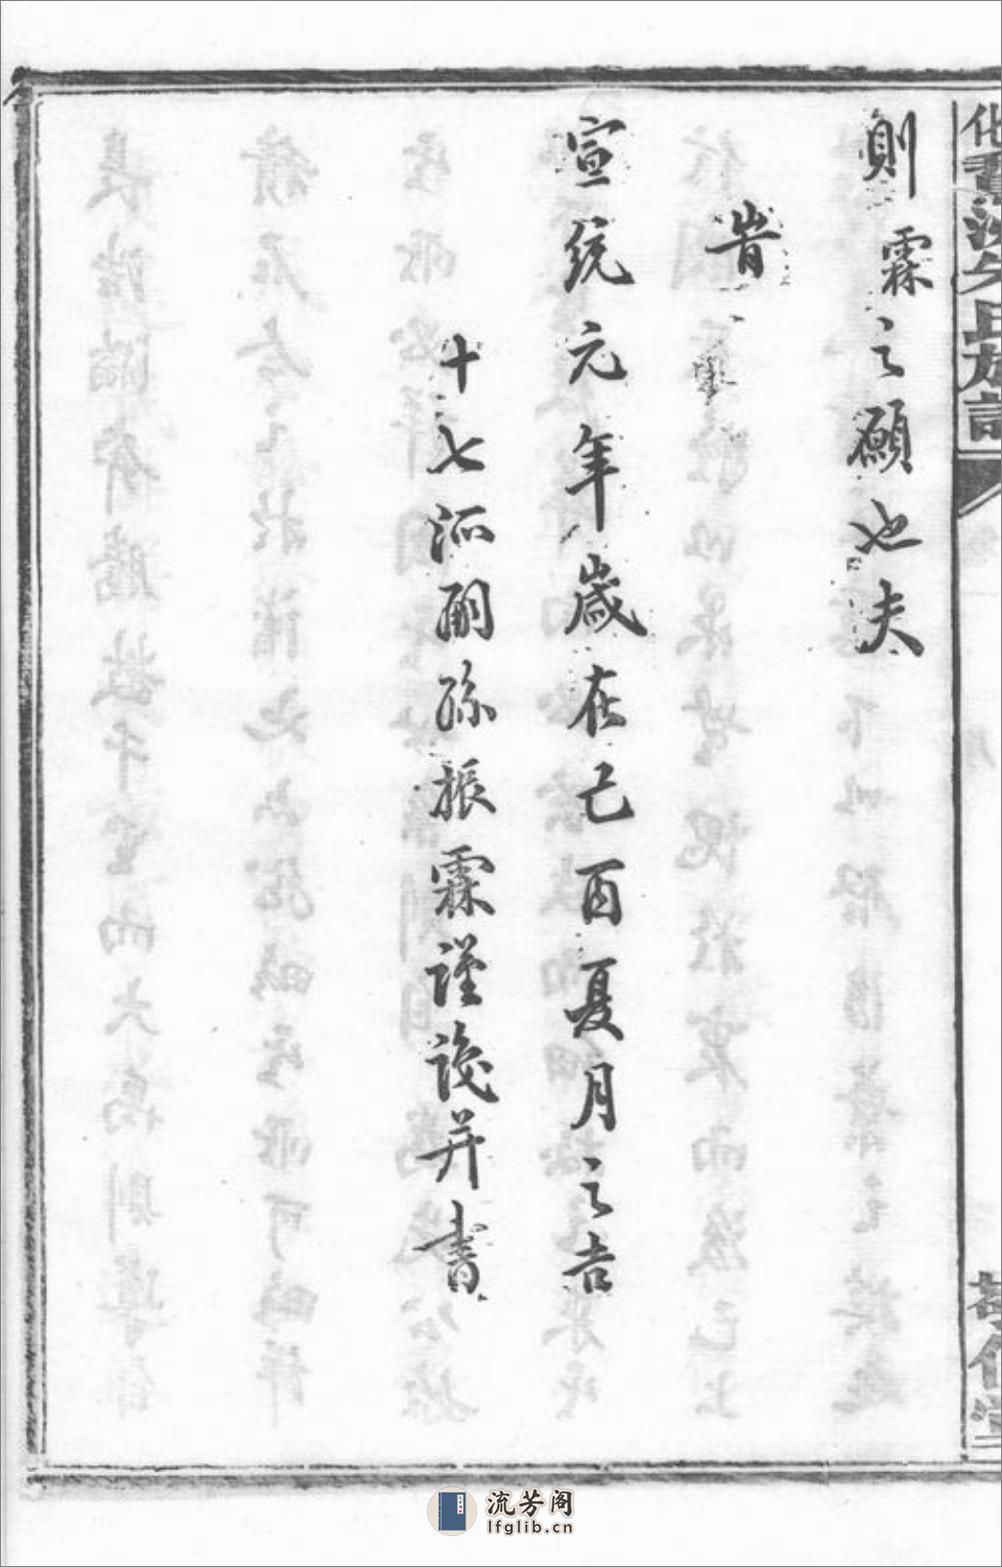 則霖之願也夫
旹
宣統元年歲在己酉夏月之吉
十七派嗣孫振霖謹譔并書
氏族譜
流芳阁
lfglib.cn